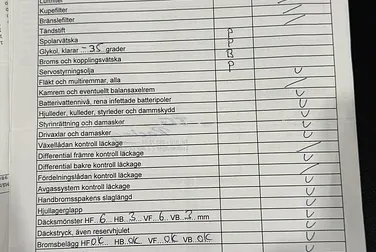 Kupefilter
Bränslefilter
Tändstift P
Spolarvätska P
Glykol, klarar -35 grader P
Broms och kopplingsvätska B
Servostyrningsolja P
Fläkt och multiremmar, alla
Kamrem och eventuellt balansaxelrem
Batterivattennivå, rena infettade batteripoler
Hjulleder, kulleder, styrleder och dammskydd
Styrinrättning och damasker
Drivaxlar och damasker
Växellådan kontroll läckage
Differential främre kontroll läckage
Differential bakre kontroll läckage
Fördelningslådan kontroll läckage
Avgassystem kontroll läckage
Handbromsspakens slaglängd
Hjullagerglapp
Däcksmönster HF 6 HB 3 VF 6 VB 3 mm
Däckstryck, även reservhjulet
Bromsbelägg HF OK HB OK VF OK VB OK